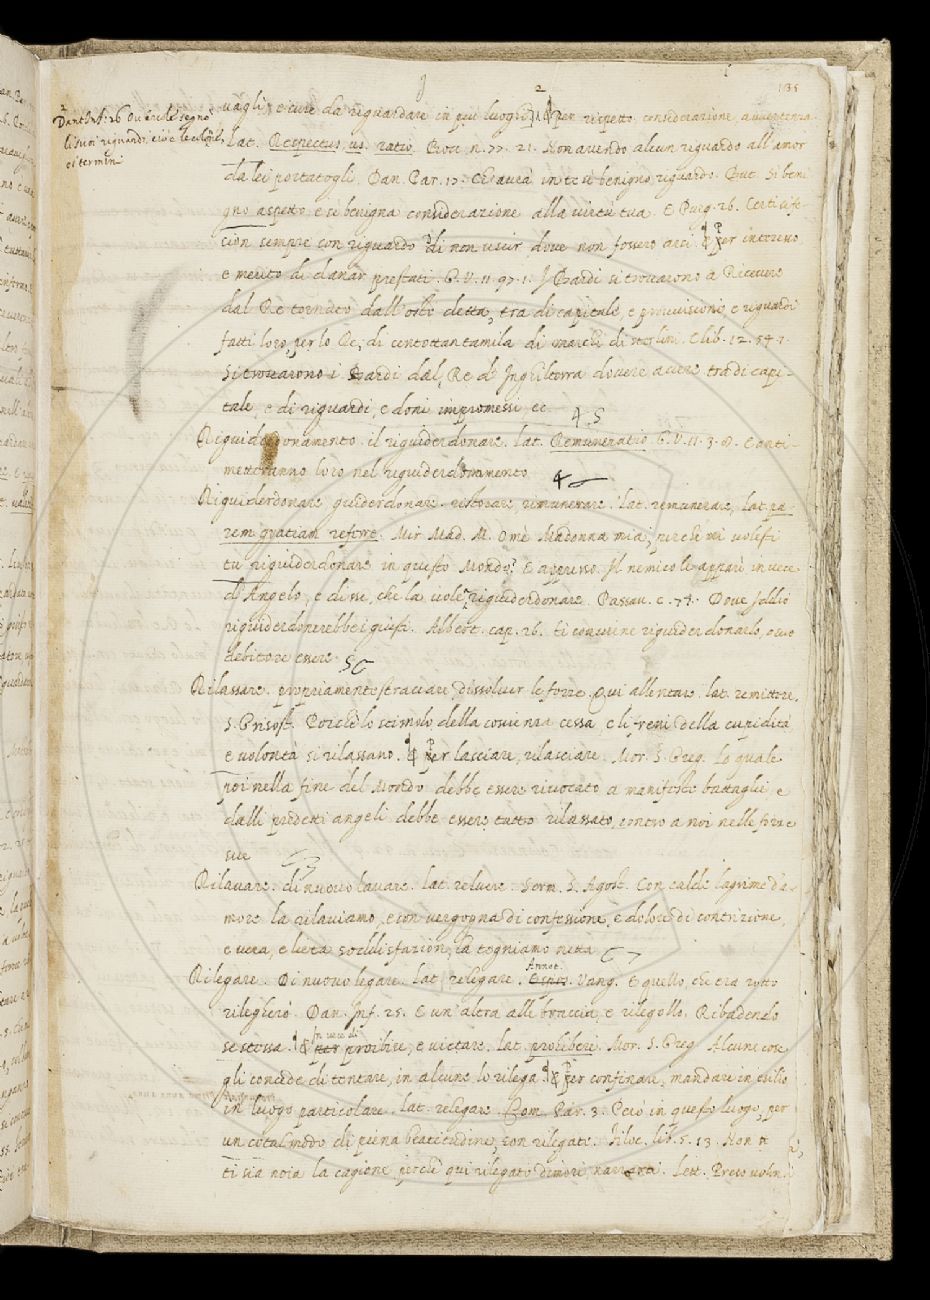 135
2
Dant. Inf. 26 Ov'ercole segnò
li suoi riguardi, cioè le colonne,
e i termini
vagli, e cure da riguardare in più luoghi. ¶ Per rispetto, considerazione, avvertenza.
Lat. Respectus, us. ratio. Bocc. n. 77. 21. Non avendo alcun riguardo all'amor
da lei portatogli. Dan. Par. 17. Ch'avrà in te sì benigno riguardo. But. Sì beni
gno aspetto e sì benigna considerazione alla virtù tua. E Purg. 26. Certi si fe-
cion sempre con riguardo di non uscir dove non fossero arsi. ¶ Per interesse,
e merito di danar prestati. G. V. 11. 87. 1. I Bardi si trovarono a ricevere
dal Re tornato dall'oste detta, tra di capitale, e provvisioni, e riguardi
fatti loro, per lo Re, di centottantamila di marchi di sterlini. E lib. 12. 54. 1.
Si trovarono i Bardi dal Re d'Inghilterra dovere avere tra di capi-
tale, e di riguardi, e doni impromessi ec
4. 5
Riguiderdonamento. il riguiderdonare. lat. Remuneratio. G. V. 11. 3. 8. E anti-
metteranno loro nel riguiderdonamento
Riguiderdonare guiderdonare. ristorare, rimunerare. lat. remunerare, lat. pa-
rem gratiam referre. Mir. Mad. M. Omè Madonna mia, perchè mi volesti
tu riguiderdonare in questo Mondo? E appresso. Il nemico le apparì in vece
d'Angelo, e disse, che la volea riguiderdonare. Passav. c. 74. Dove Iddio
riguiderdonerebbe i giusti. Albert. cap. 26. ti conviene riguiderdonarlo, ovvero
debitore essere.
Rilassare. propriamente straccare, dissolver le forze. Qui allentare. lat. remittere.
S. Grisost. Perchè lo stimolo della coscienza cessa, e li freni della cupidità,
e volontà si rilassano. ¶ Per lasciare, rilasciare. Mor. S. Greg. Lo quale
poi nella fine del Mondo debbe essere rivocato a manifeste battaglie, e
dalli predetti angeli debbe essere tutto rilassato, contro a noi nelle forze
sue
Rilavare. di nuovo lavare. lat. reluere. Serm. S. Agost. Con calde lagrime d'a-
more la rilaviamo, e con vergogna di confessione, e dolore di contrizione,
e vera, e lieta soddisfazion, la tegniamo netta
Rilegare. Di nuovo legare. lat. relegare. Annot. Vang. E quello, che era rotto
rilegherò. Dan. Inf. 25. E un'altra alle braccia, e rilegollo. Ribadendo
se stessa. ¶ in vece di proibire, e vietare. lat. prohibere. Mor. S. Greg. Alcune cose
gli concede di tentare, in alcune lo rilega. ¶ Per confinare, mandare in esilio
in luogo particolare. lat. relegare. Com. Par. 3. Però in questo luogo, per
un cotal modo di piena beatitudine, son rilegate. Filoc. lib. 5. 13. Non
ti sia noia la cagione, perchè qui rilegato dimori, narrarci. Lett.